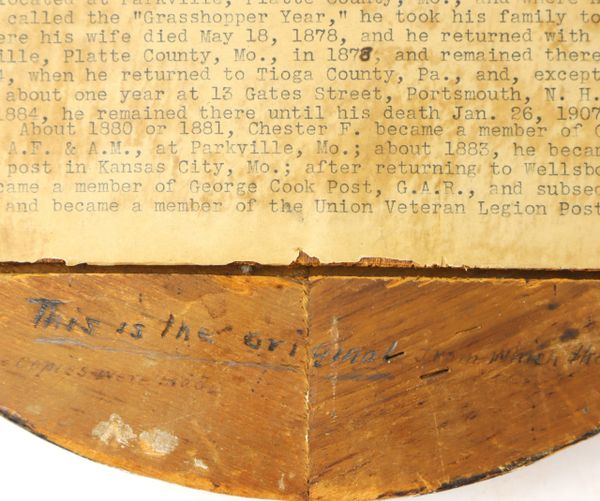 located at Parkville, Platte County, Mo., and where h
called the "Grasshopper Year," he took his family to
ere his wife died May 18, 1878, and he returned with
ille, Platte County, Mo., in 1878, and remained there
4, when he returned to Tioga County, Pa., and, except
about one year at 13 Gates Street, Portsmouth, N. H.
1884, he remained there until his death Jan. 26, 1907
About 1880 or 1881, Chester F. became a member of
A.F. & A.M., at Parkville, Mo.; about 1883, he becam
post in Kansas City, Mo.; after returning to Wellsbo
came a member of George Cook Post, G.A.R., and subseq
and became a member of the Union Veteran Legion Post
This is the original from which the
copies were made